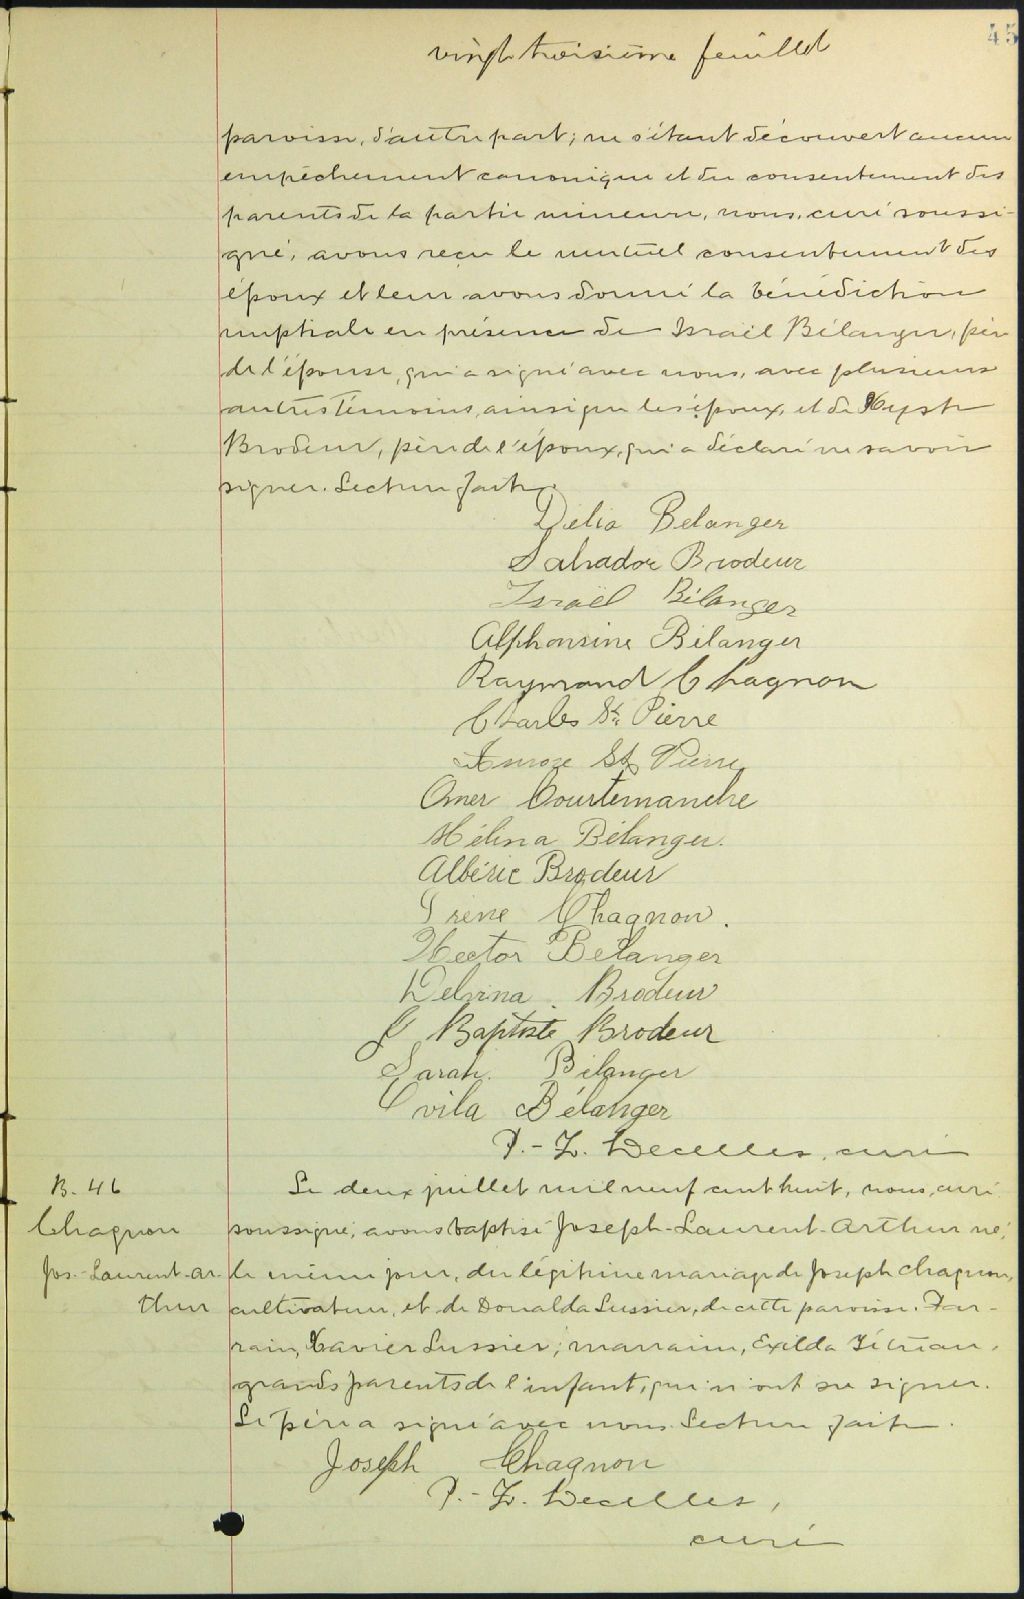 45
vingt troisième feuillet
paroisse, d'autre part; ne s'étant découvert aucun
empêchement canonique et du consentement des
parents de la partie mineure, nous, curé soussi-
gné, avons reçu le mutuel consentement des
époux et leur avons donné la bénédiction
nuptiale en présence de Israël Bélanger, père
de l'épouse, qui a signé avec nous, avec plusieurs
autres témoins, ainsi que les époux, et de Xyste
Brodeur, père de l'époux, qui a déclaré ne savoir
signer. Lecture faite.
Délia Belanger
Salvador Brodeur
Israël Bélanger
Alphonsine Bélanger
Raymond Chagnon
Charles St. Pierre
St Pierre
Omer Courtemanche
Mélina Bélanger.
Albéric Brodeur
Irene Chagnon.
Hector Bélanger
Delvina Brodeur
J Baptiste Brodeur
Sarah. Bélanger
Ovila Bélanger
P.-Z. Decelles, curé
B. 46
Chagnon
Jos.-Laurent-Ar-
thur
Le deux juillet mil neuf cent huit, nous, curé
soussigné, avons baptisé Joseph-Laurent-Arthur né,
le même jour, du légitime mariage de Joseph Chagnon,
cultivateur, et de Donalda Lussier, de cette paroisse. Par-
rain, Xavier Lussier; marraine, Exilda
grands parents de l'enfant, qui n'ont su signer.
Le père a signé avec nous. Lecture faite.
Joseph Chagnon
P.-Z. Decelles,
curé